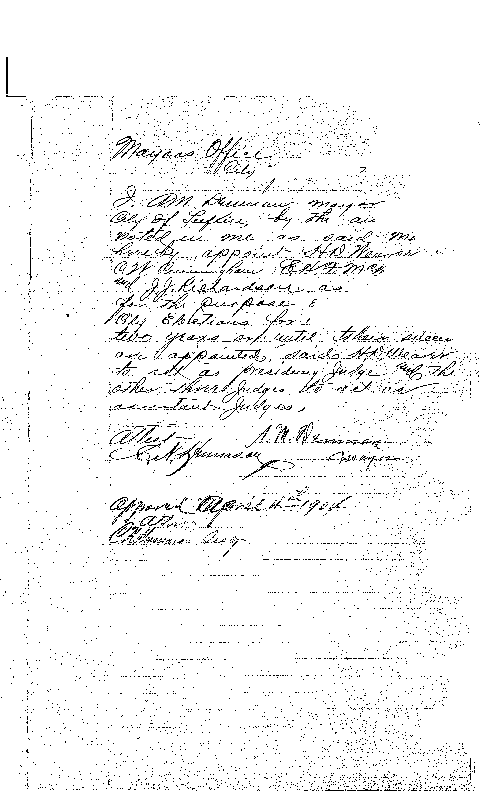 Mayors Office
City
I. A.M. Denman, mayor
City of Lufkin, by the au
vested in me as said Ma
hereby appoint H.B. Weaver
A.W. Cunningham
and J.J. Richardson as
for the purpose
City Elections for
two years or until their succe
are appointed, said Weaver
to act as presiding Judge and the
other three Judges to act as
assistant Judges.
Attest A.M. Denman
Denman Mayor
Approved April 4th
Secy